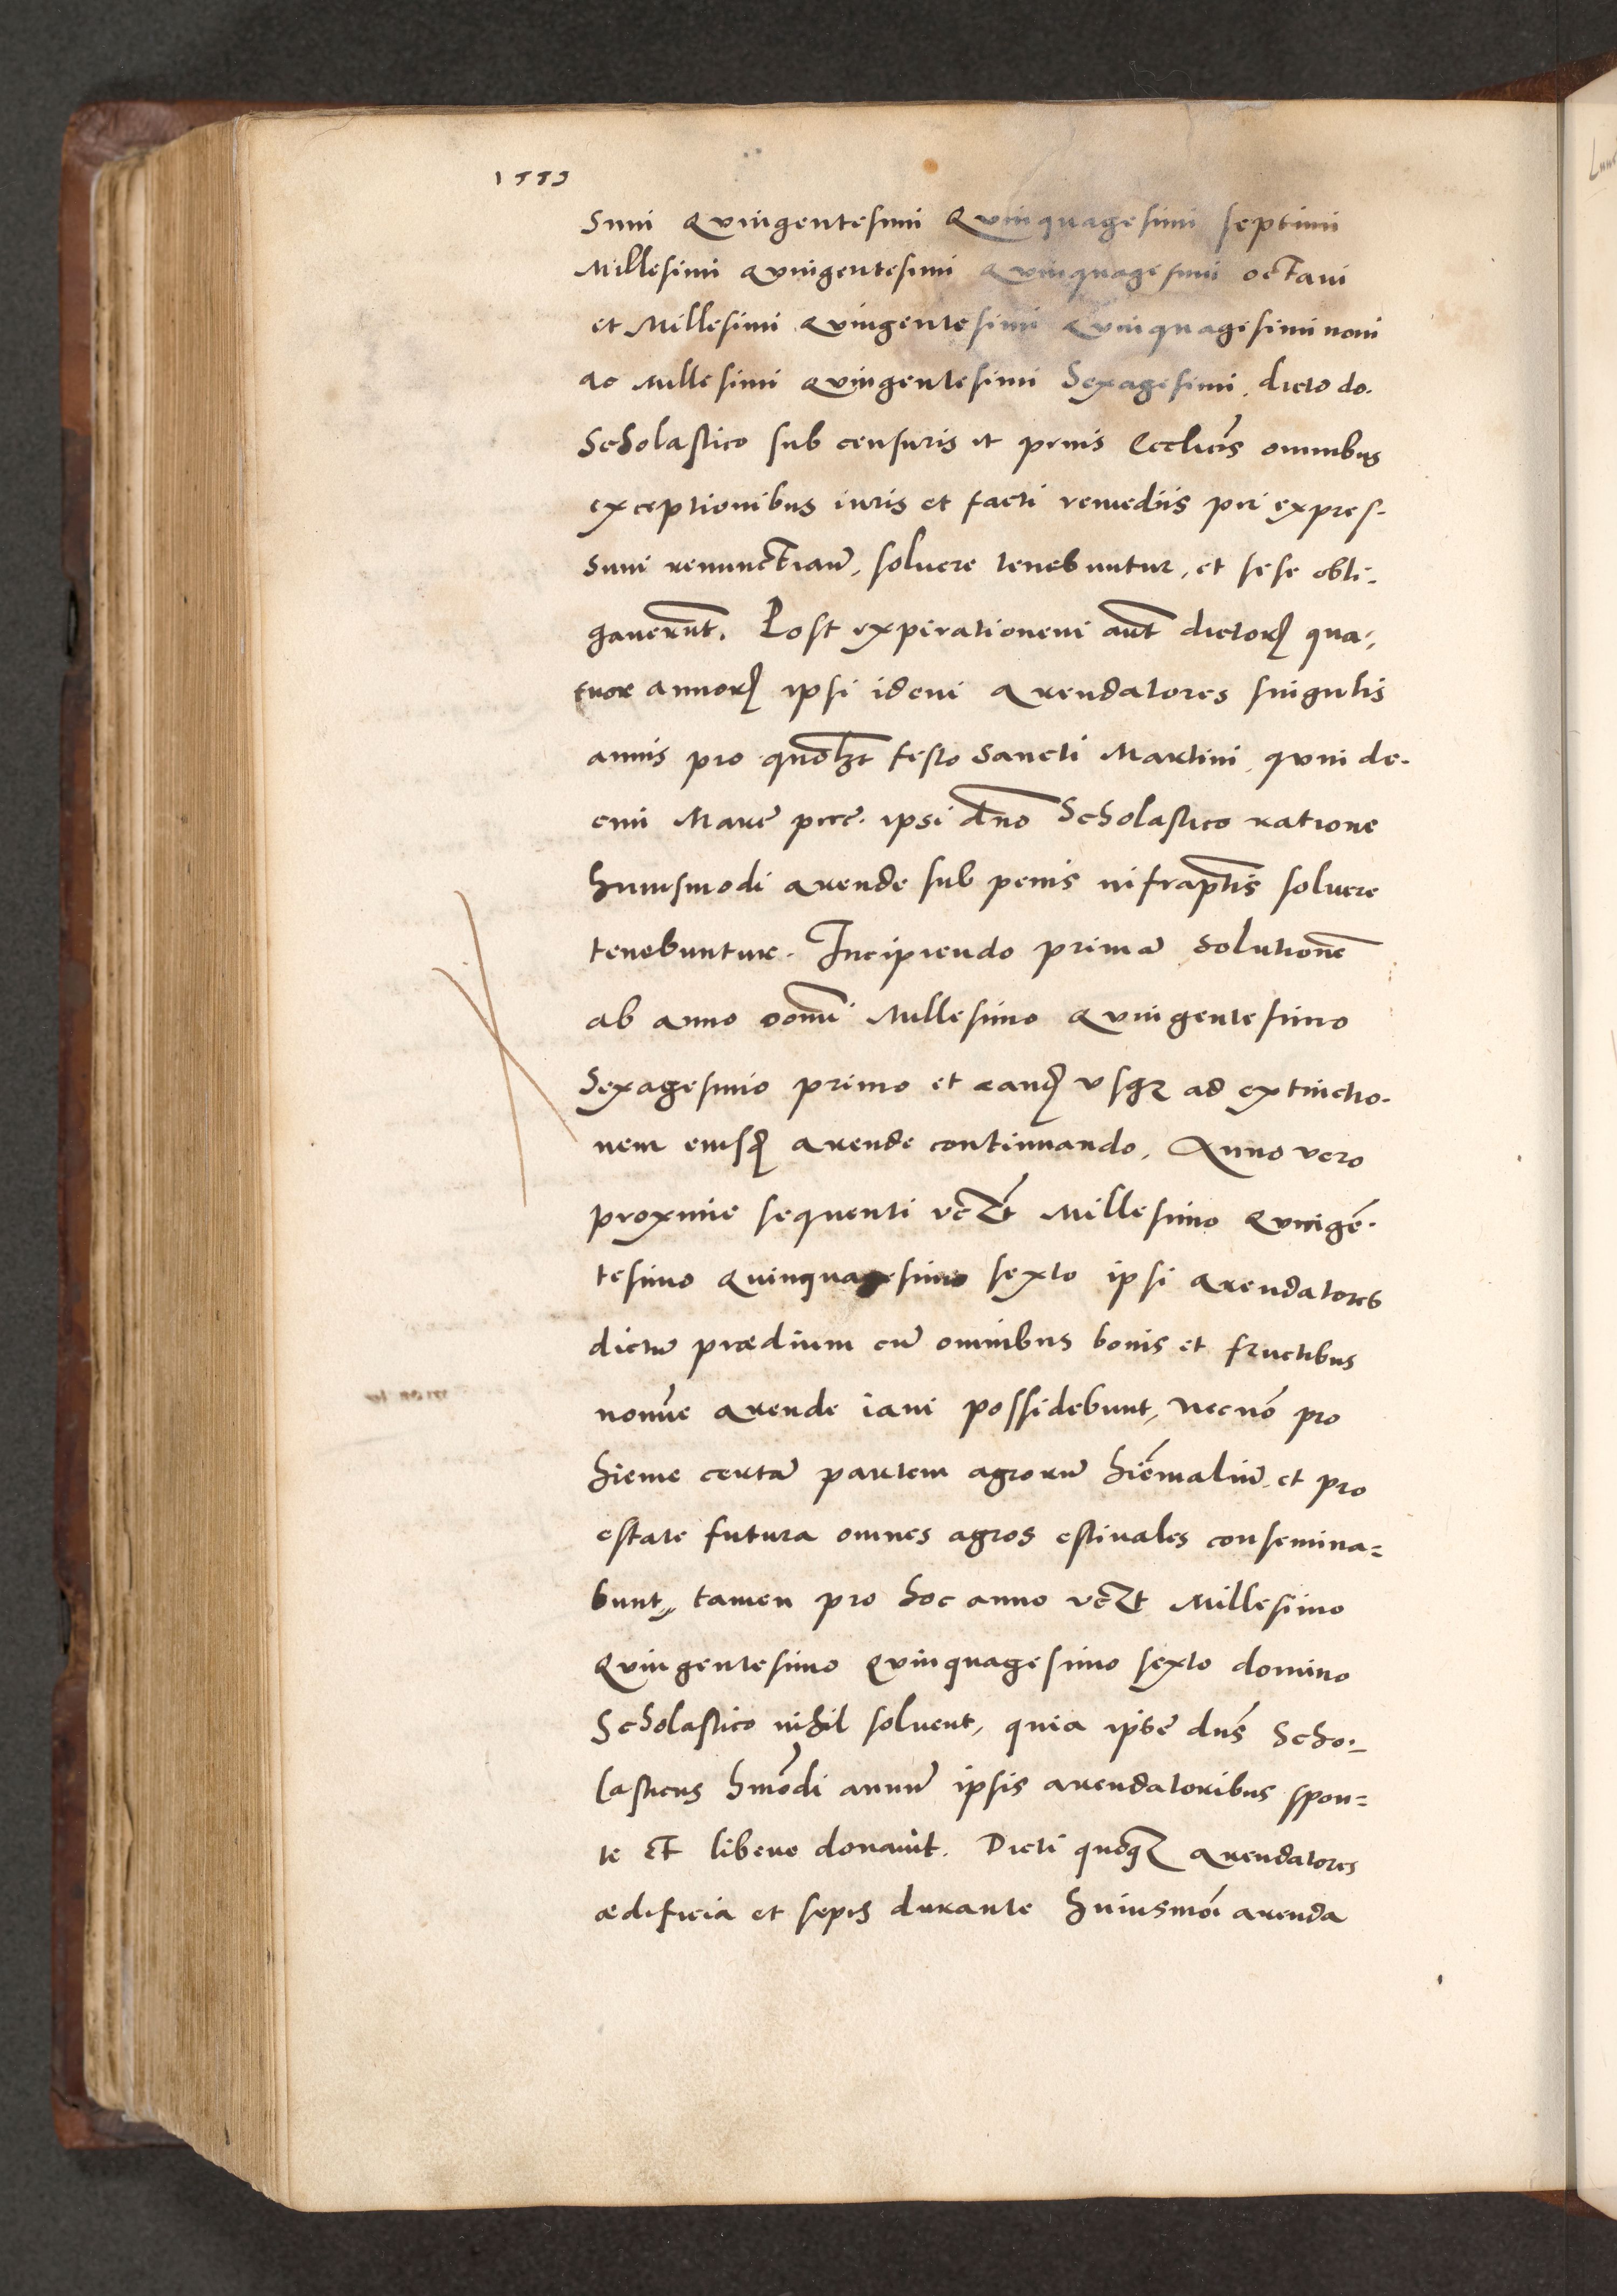 1553
simi Quingentesimi Quinquagesimi septimi
Millesimi Quingentesimi Quinquagesimi octavi
et Millesimi Quingentesimi Quinquagesimi noni
ac Millesimi Quingentesimi Sexagesimi, dicto do.
Scholastico sub censuris et penis Ecclicis omnibus
exceptionibus iuris et facti remediis expres-
sum renunctian̄, soluere tenebuntur, et sese obli-
gauerūt. Post expirationem aūt dictorꝝ qua-
tuor annorꝝ ipsi idem Arendatores singulis
annis pro quolꝫt festo Sancti Martini, quin de-
cim Marc̄ ipsi dn̄o Scholastico ratione
huiusmodi arende sub penis infrap̄tis soluere
tenebuntur. Incipiendo primā solutionē
ab anno domī Millesimo Quingentesimo
Sexagesimo primo et eandꝫ vsqꝫ ad extinctio-
nem eiusdꝫ arende continuando. Anno vero
proxime sequenti vcꝫt Millesimo Quingē-
tesimo Quinquagesimo sexto ipsi arendatores
dictū prædium cū omnibus bonis et fructibus
nomīe arende iam possidebunt, necnō pro
hieme certā partem agrorū hiēmaliū, et pro
estate futura omnes agros estiuales consemina=
bunt, tamen pro hoc anno vcꝫt Millesimo
Quingentesimo Quinquagesimo sexto domino
Scholastico nihil soluent, quia ipse dn̄s Scho-
lasticus hmōdi annū ipsis arendatoribus spon=
te et libere donauit. Dicti quoqꝫ Arendatores
ædificia et sepes durante huiusmōi arenda